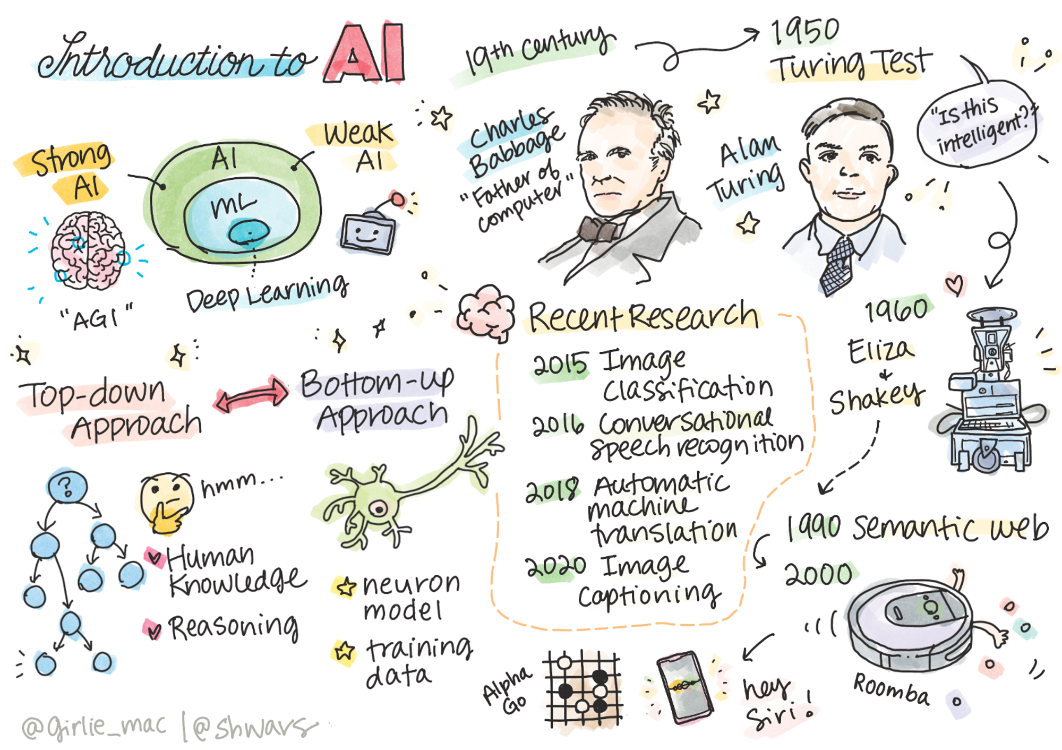 Introduction to AI
Strong
AI
AI
ML
Weak
AI
Deep Learning
"AGI"
19th century
Charles
Babbage
"Father of
computer"
1950
Turing Test
Alan
Turing
"Is this
intelligent?"
1960
Eliza
&
Shakey
Top-down
Approach
Bottom-up
Approach
?
hmm...
Human
Knowledge
Reasoning
neuron
model
training
data
Recent Research
2015 Image
classification
2016 Conversational
speech recognition
2018 Automatic
machine
translation
2020 Image
Captioning
1990 Semantic web
2000
Roomba
Alpha
Go
hey
Siri!
@girlie_mac | @shwars